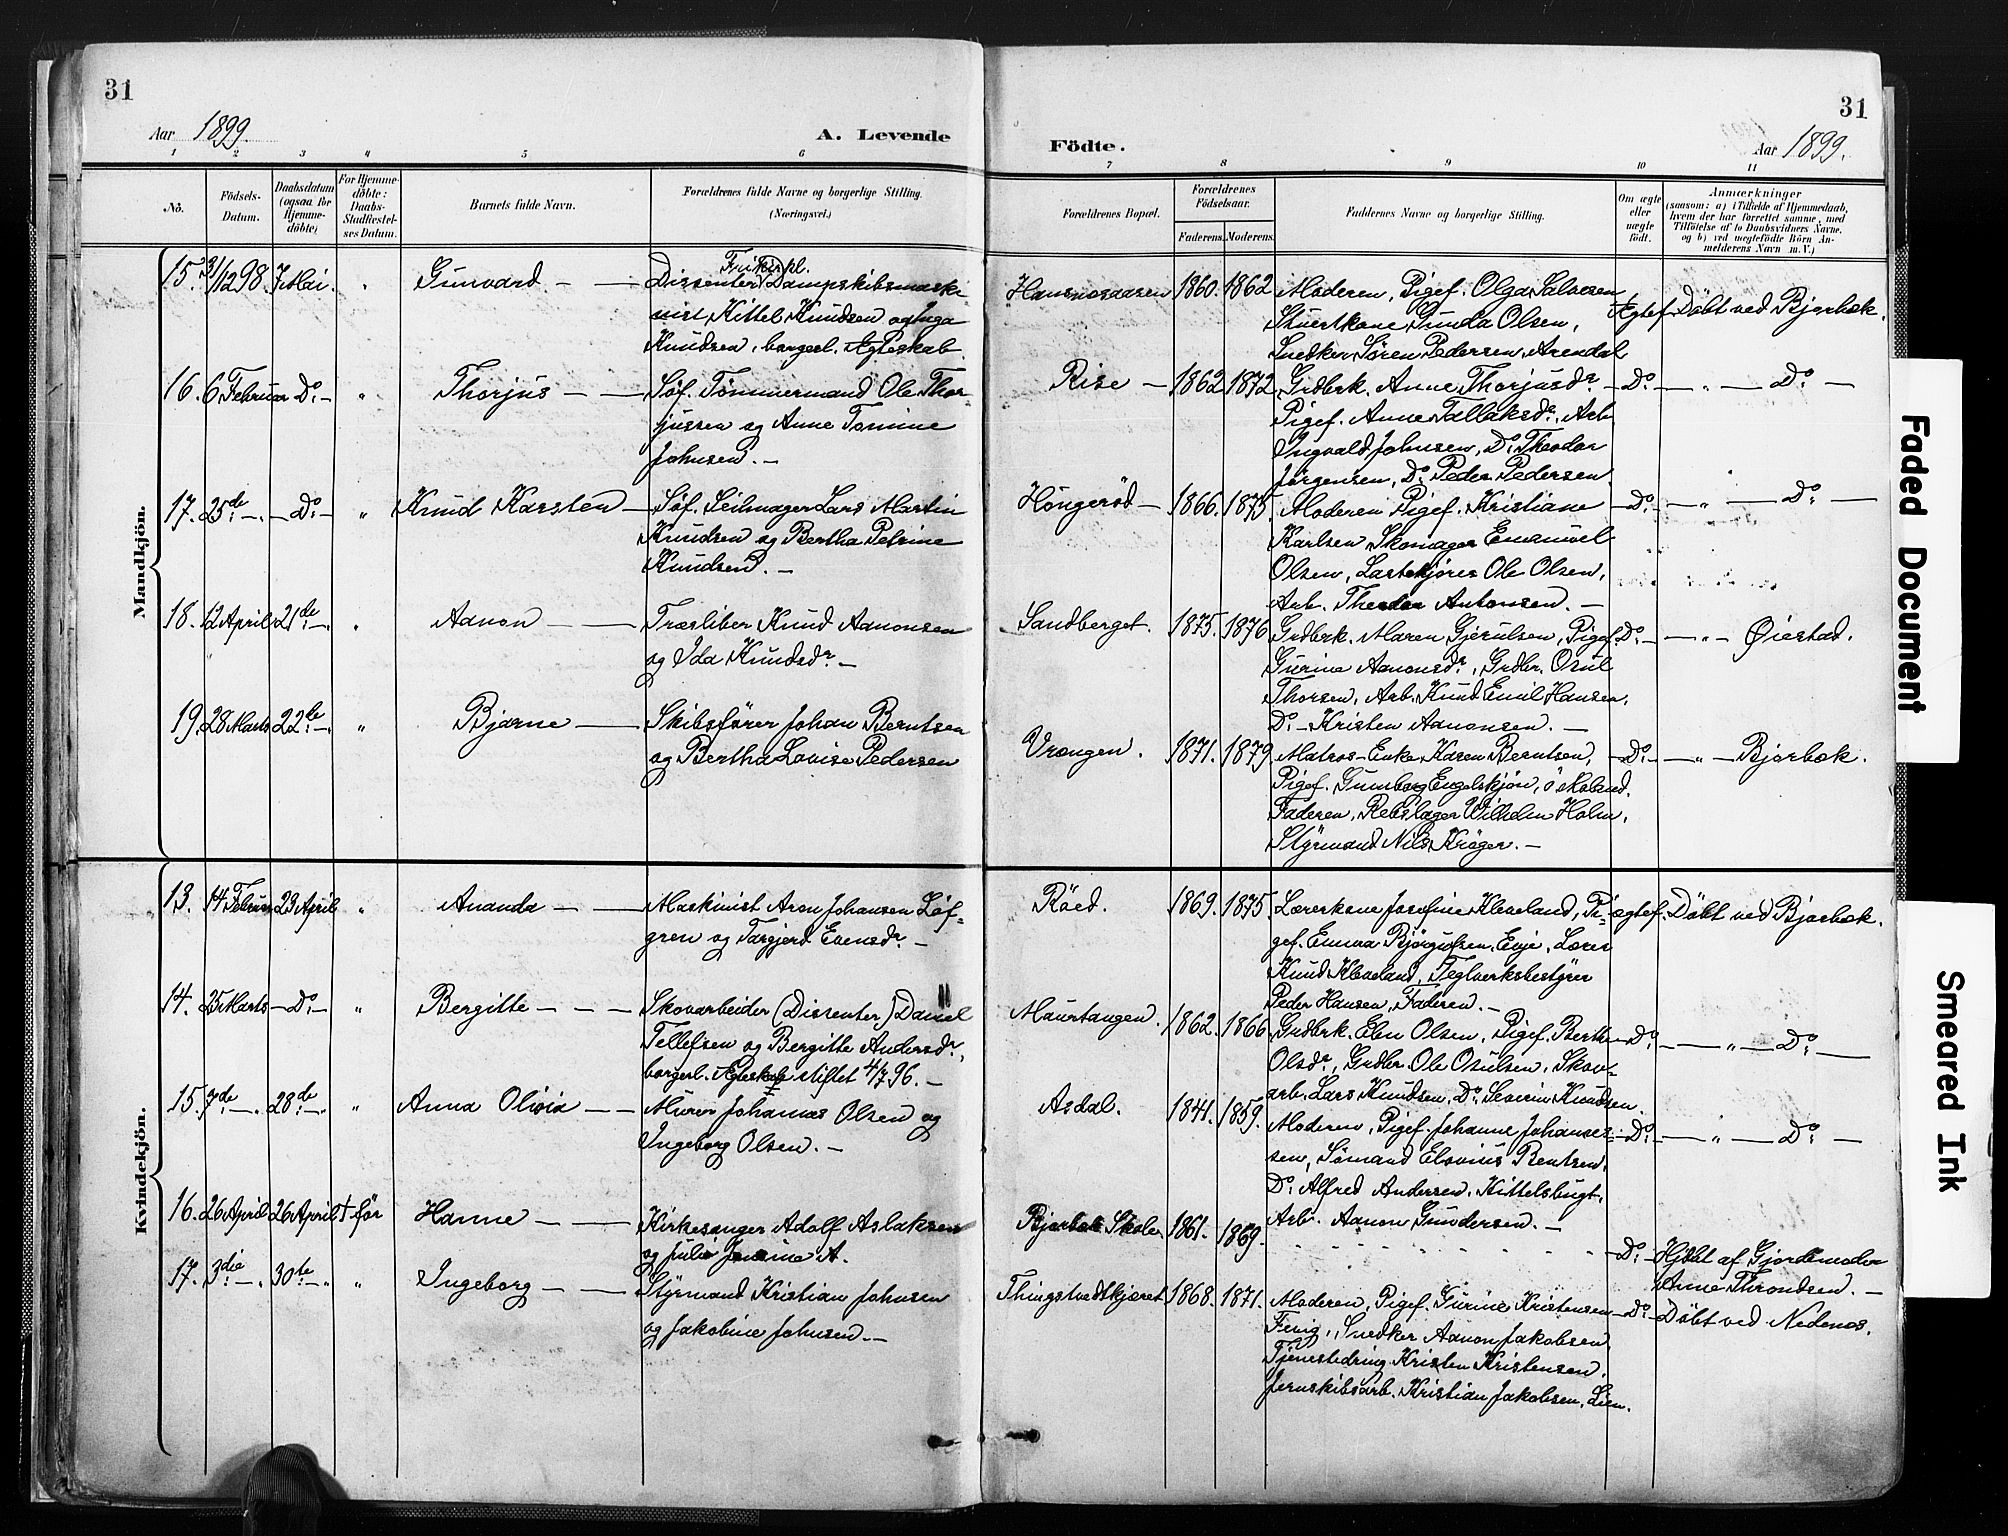 31
31
Aar 1899.
A. Levende
Födte.
Aar 1899.
1 2 3 4 5 6 7 8 9 10 11
No.
Födsels-
Datum.
Daabsdatum
(ogsaa for
Hjemme-
döbte)
For Hjemme-
döbte:
Daabs-
Stadfæstel-
ses Datum.
Barnets fulde Navn.
Forældrenes fulde Navne og borgerlige Stilling.
(Næringsvei.)
Forældrenes Bopæl.
Forældrenes
Födselsaar.
Faderens. Moderens.
Faddernes Navne og borgerlige Stilling.
Om ægte
eller
uægte
födt.
Anmærkninger
(saasom: a) i Tilfælde af Hjemmedaab,
hvem der har forrettet samme, med
Tilföielse af to Daabsvidners Navne,
og b) ved uægtefödte Börn An-
melderens Navn m. V.)
Mandkjön.
15. 31/12 98. 7 Mai " Gunvard — —
Frikirkl.
Dissenter) Dampskibsmaski-
nist Kittel Knudsen og Inga
Knudsen, borgerl. Ægteskab.
Hansnesaasen 1860. 1862
Moderen, Pigef. Olga Salvesen
Stuertkone Gunda Olsen,
Snedker Søren Pedersen, Arendal
Ægtef. Døbt ved Bjorbæk.
16. 6 Februar Do. — " Thorjus — —
Søf. Tømmermand Ole Thor-
jussen og Anne Tomine
Johnsen. —
Rise — 1862 1872
Grdbrk. Anne Thorjusdr.
Pigef. Anne Tallaksdr., Arb.
Ingvald Johnsen, Do. Theodor
Jørgensen, Do. Peder Pedersen.
— Do. — " — Do. —
17. 25de — Do. — " Knud Karsten —
Søf. Seilmager Lars Martin
Knudsen og Bertha Petrine
Knudsen. —
Høngerød — 1866. 1875.
Moderen Pigef. Kristiane
Karlsen Skomager Emanuel
Olsen, Lastekjører Ole Olsen,
Arb. Theodor Antonsen. —
— Do. — " — Do. —
18. 12 April 21de — " Aanon — —
Træsliber Knud Aanonsen
og Ida Knudsdr. —
Sandberget. 1875. 1876
Grdbrk. Maren Gjerulsen, Pigef.
Gurine Aanonsdr., Grdbr. Osul
Thorsen, Arb. Knud Emil Hansen,
Do. — Kristen Aanonsen. —
Do. — " — Øiestad.
19. 28 Marts 22de — " Bjarne —
Skibsfører Johan Berntsen
og Bertha Lovise Pedersen
Vrengen. 1871. 1879
Matros-Enke Karen Berntsen,
Pigef. Gunborg Engelskjøn,
Faderen, Rebslager Wilhelm Holm,
Styrmand Nils Krøger. —
— Do. — " — Bjorbæk.
Kvindekjön.
13. 14 Februar 23 April " Ananda — —
Maskinist Aron Johansen Løf-
gren og Targjerd Evensdr. —
Røed. 1869. 1875.
Lærerkone Josefine Kleveland, Pi-
gef. Emma Bjørgulfsen, Evje, Lærer
Knud Kleveland, Teglverksbestyrer
Peder Hansen, Faderen. —
ægtef. Døbt ved Bjorbæk.
14. 25 Marts — Do. — " Bergitte — — —
Skovarbeider (Dissenter) Daniel
Tellefsen og Bergitte Andersdr.,
borgerl. Ægteskab stiftet 4/7 96. —
Maurtangen. 1862. 1866
Grdbrk. Elen Olsen, Pigef. Berthe
Olsdr., Grdbr. Ole Osulsen, Skov-
arb. Lars Knudsen, Do. Severin Knudsen.
— Do. — " — Do. —
15. 7de — 28de — " Anna Olivia — —
Murer Johannes Olsen og
Ingeborg Olsen. —
Asdal. 1841. 1859.
Moderen, Pigef. Johanne Johannes-
sen, Sømand Elovius Bentsen,
Do. Alfred Andersen, Kittelsbugt,
Arb. Aanon Gundersen. —
— Do. — " — Do. —
16. 26 April 26 April † før Hanne — —
Kirkesanger Adolf Aslaksen
og Julie A.
Bjorbæk Skole 1861. 1869.
Do. — Hjdøbt af Gjordemoder
Anne Throndsen. —
17. 3die — 30te — " Ingeborg — —
Styrmand Kristian Johnsen
og Jakobine Johnsen. —
Thingstvedtkjæret 1868. 1871.
Moderen, Pigef. Gurine Kristensen
Fevig, Snedker Aanon Jakobsen,
Tjenestedreng Kristen Kristensen,
Jernskibsarb. Kristian Jakobsen, Lien.
— Do. — Døbt ved Nedenes.
Faded Document
Smeared Ink